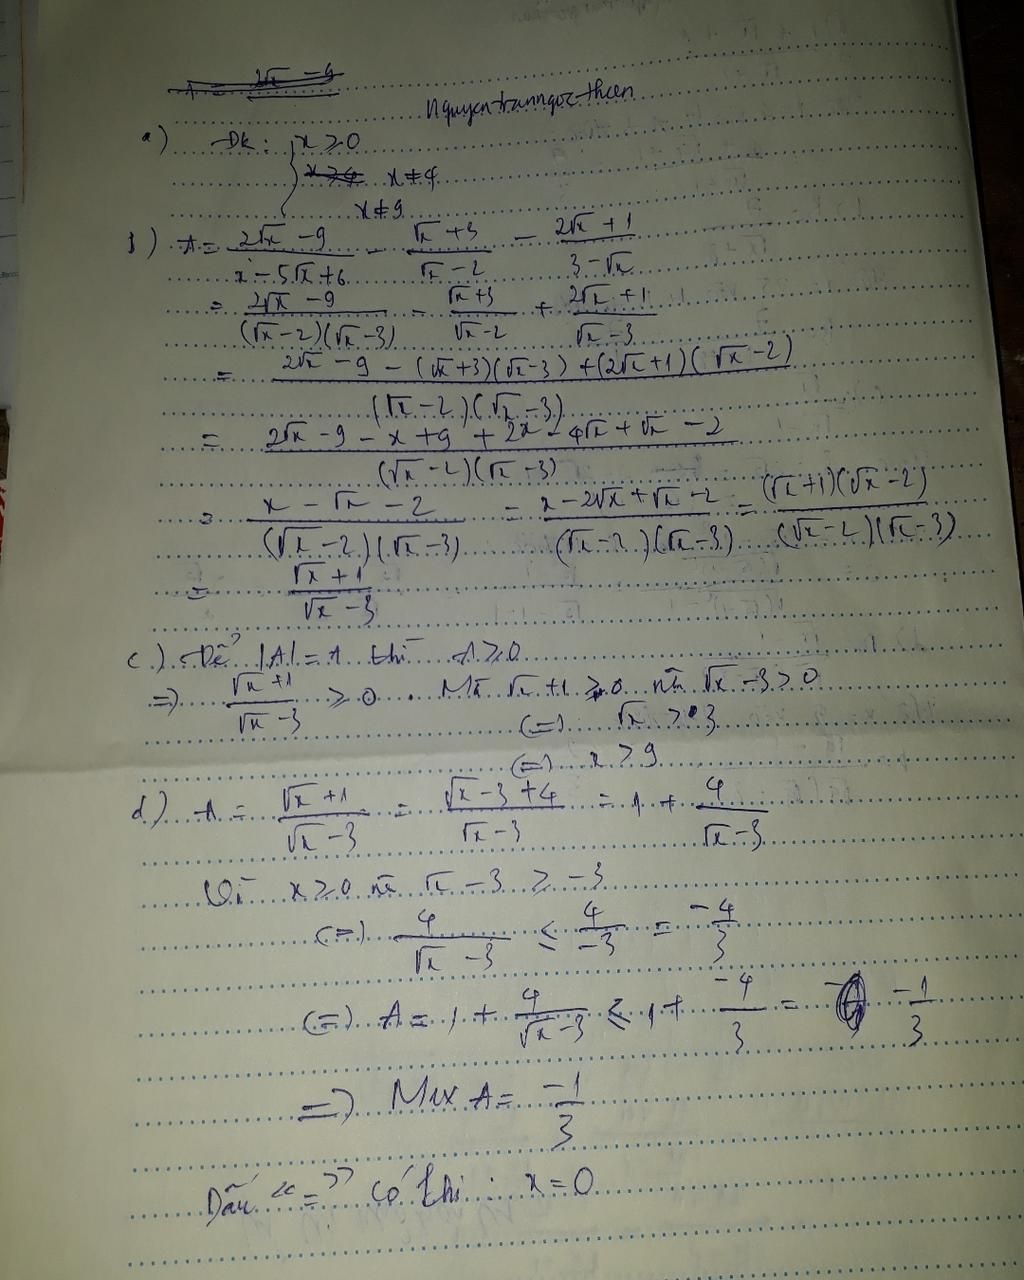 Nguyentranngocthien
a) Đk: { x ≥ 0
x ≠ 4
x ≠ 9
b) A = (2√x - 9)/(x - 5√x + 6) - (√x + 3)/(√x - 2) - (2√x + 1)/(3 - √x)
= (2√x - 9)/((√x - 2)(√x - 3)) - (√x + 3)/(√x - 2) + (2√x + 1)/(√x - 3)
= (2√x - 9 - (√x + 3)(√x - 3) + (2√x + 1)(√x - 2))/((√x - 2)(√x - 3))
= (2√x - 9 - x + 9 + 2x - 4√x + √x - 2)/((√x - 2)(√x - 3))
= (x - √x - 2)/((√x - 2)(√x - 3)) = (x - 2√x + √x - 2)/((√x - 2)(√x - 3)) = ((√x + 1)(√x - 2))/((√x - 2)(√x - 3))
= (√x + 1)/(√x - 3)
c) Để |A| = A thì A ≥ 0
=> (√x + 1)/(√x - 3) ≥ 0. Mà √x + 1 ≥ 0 nên √x - 3 > 0
(=) √x > 3
(=) x > 9
d) A = (√x + 1)/(√x - 3) = (√x - 3 + 4)/(√x - 3) = 1 + 4/(√x - 3)
Vì x ≥ 0 nên √x - 3 ≥ -3
(=) 4/(√x - 3) ≤ 4/-3 = -4/3
(=) A = 1 + 4/(√x - 3) ≤ 1 + -4/3 = -1/3
=> Max A = -1/3
Dấu "=" có khi: x = 0